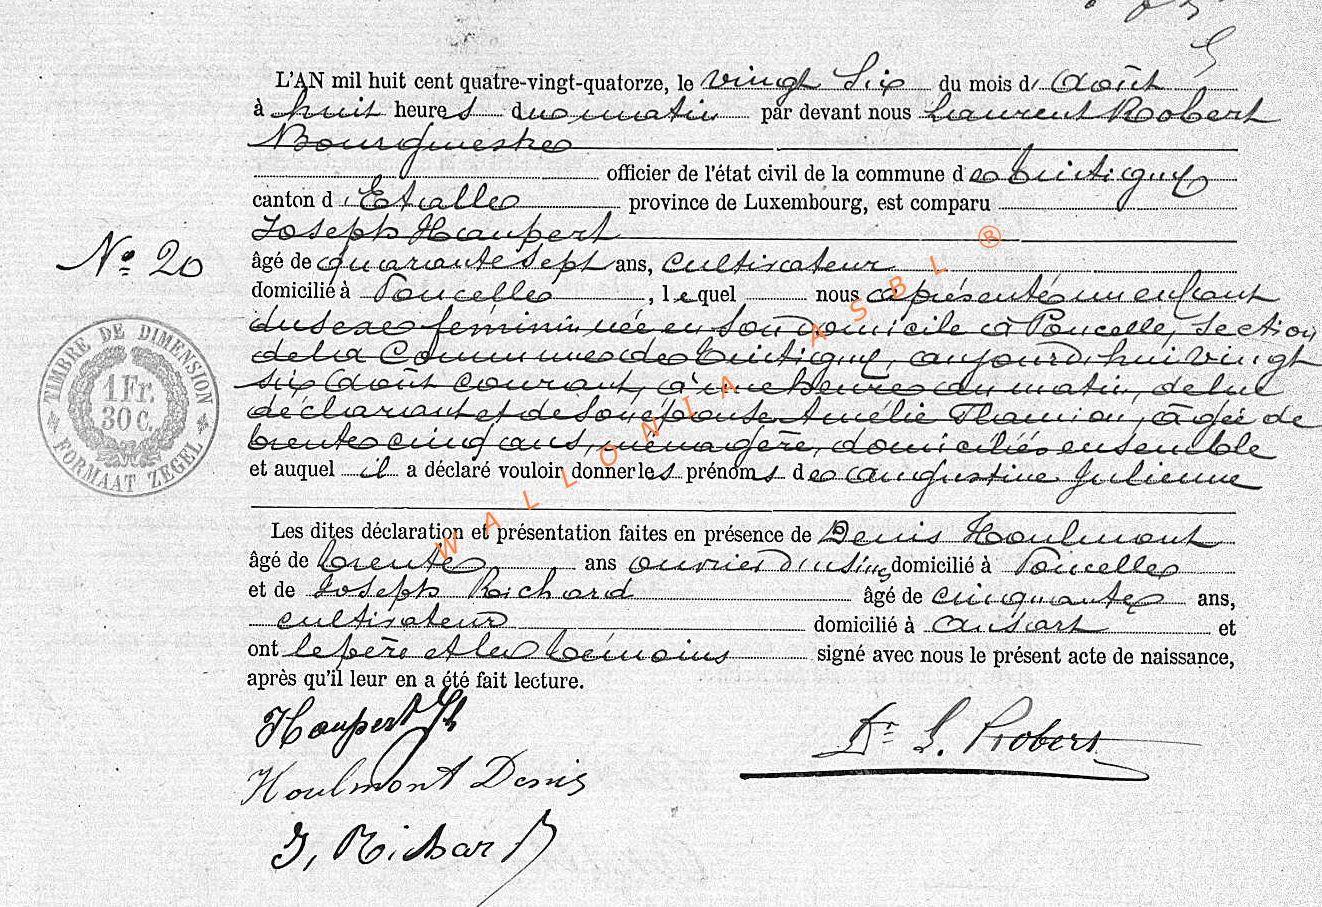 L'AN mil huit cent quatre-vingt-quatorze, le vingt six du mois d' août
à huit heures du matin par devant nous Laurent Robert
Bourgmestre
officier de l'état civil de la commune de Tintigny
canton d' Etalle province de Luxembourg, est comparu
Joseph Haupert
N° 20
âgé de quarante sept ans, cultivateur
domicilié à Poncelle, lequel nous a présenté un enfant
du sexe féminin née en son domicile à Poncelle, section
de la Commune de Tintigny, aujourd'hui vingt
six août courant, à une heure du matin, de lui
déclarant et de son épouse Amélie Thamion, âgée de
trente cinq ans, ménagère, domiciliés ensemble
et auquel il a déclaré vouloir donner les prénoms de Augustine Julienne
Les dites déclaration et présentation faites en présence de Denis Houlmont
âgé de trente ans ouvrier d'usine domicilié à Poncelle
et de Joseph Richard âgé de cinquante ans,
cultivateur domicilié à Ansart et
ont le père et les témoins signé avec nous le présent acte de naissance,
après qu'il leur en a été fait lecture.
Haupert Jh
Dr L. Robert
Houlmont Denis
J, Richard
TIMBRE DE DIMENSION
1 Fr.
30 C.
FORMAAT ZEGEL
WALLONIA ASBL ®